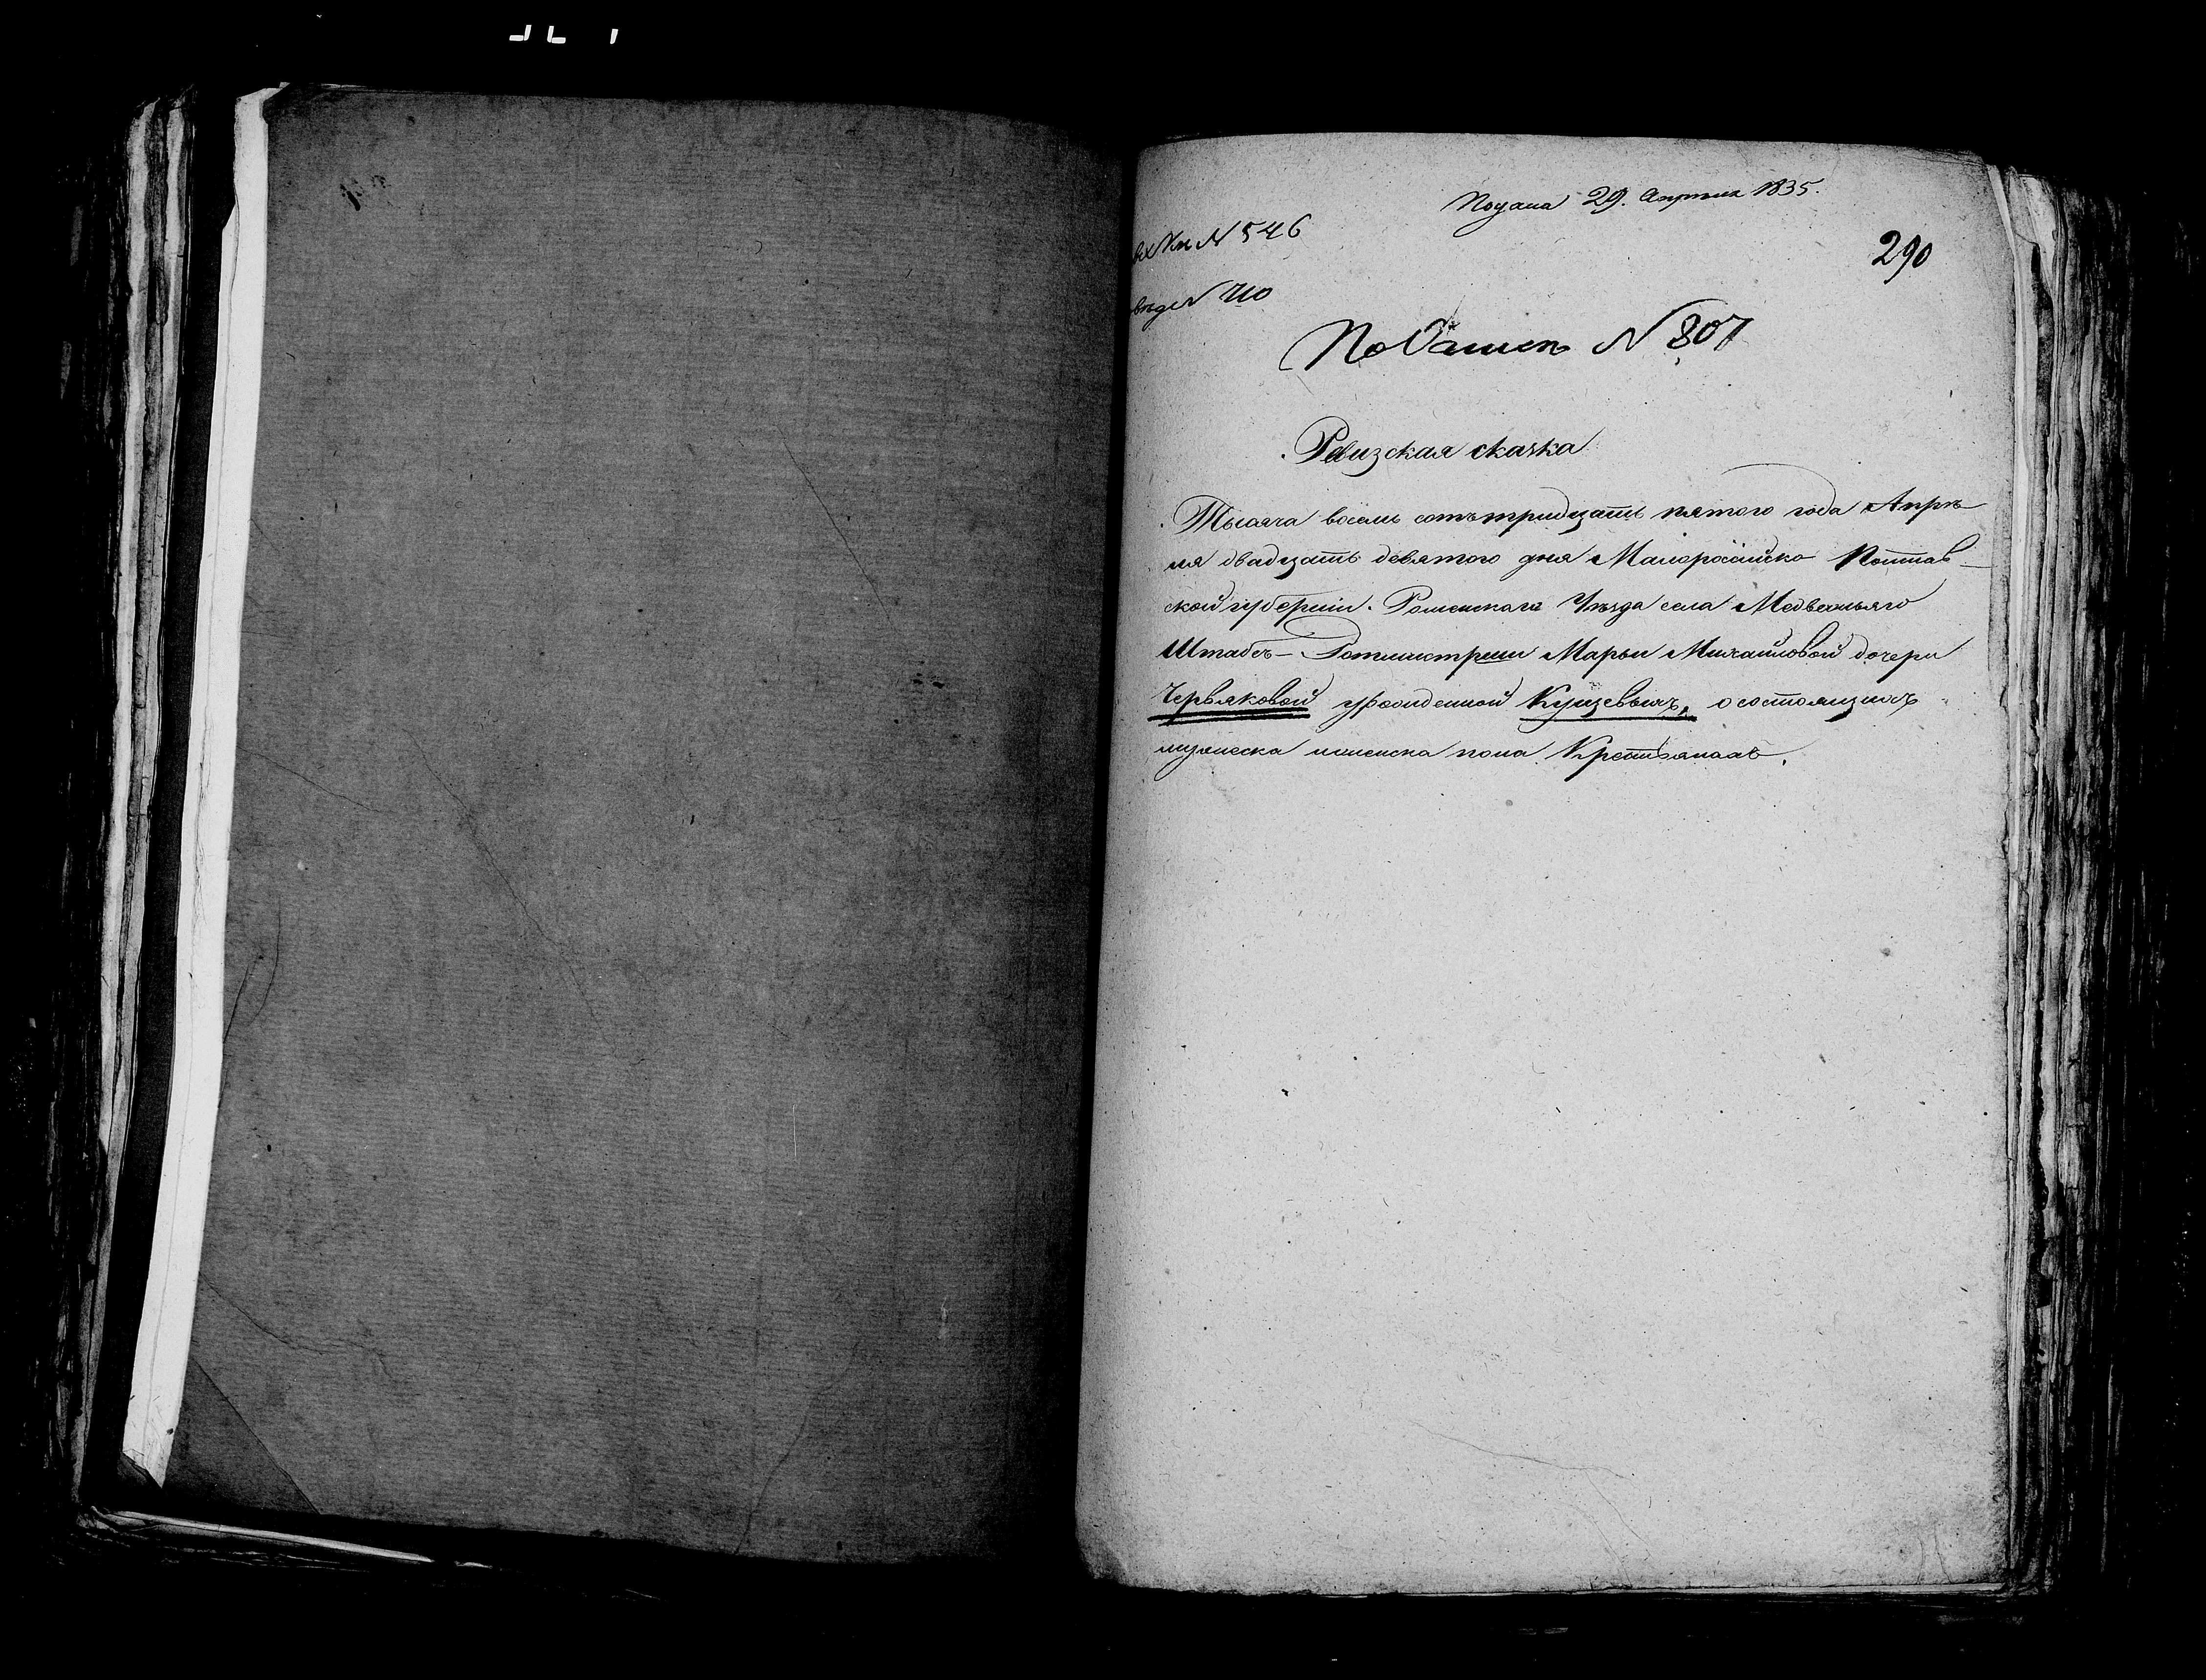 Подана 29. Апреля 1835.
вх Кн N 546
290
N 710
N 807
Ревизская сказка
Тысяча восемь сотъ тридцать пятого года Апрѣ
ля двадцать девятого дня Малоросійско Полтав-
ской губерніи. Роменскаго Уѣзда села Медвежьяго
Штабсъ-Ротмистрши Марьи Михайловой дочери
Червяковой урожденной Кущевыхъ, о состоящихъ
мужеска и женска пола Крестьянахъ.